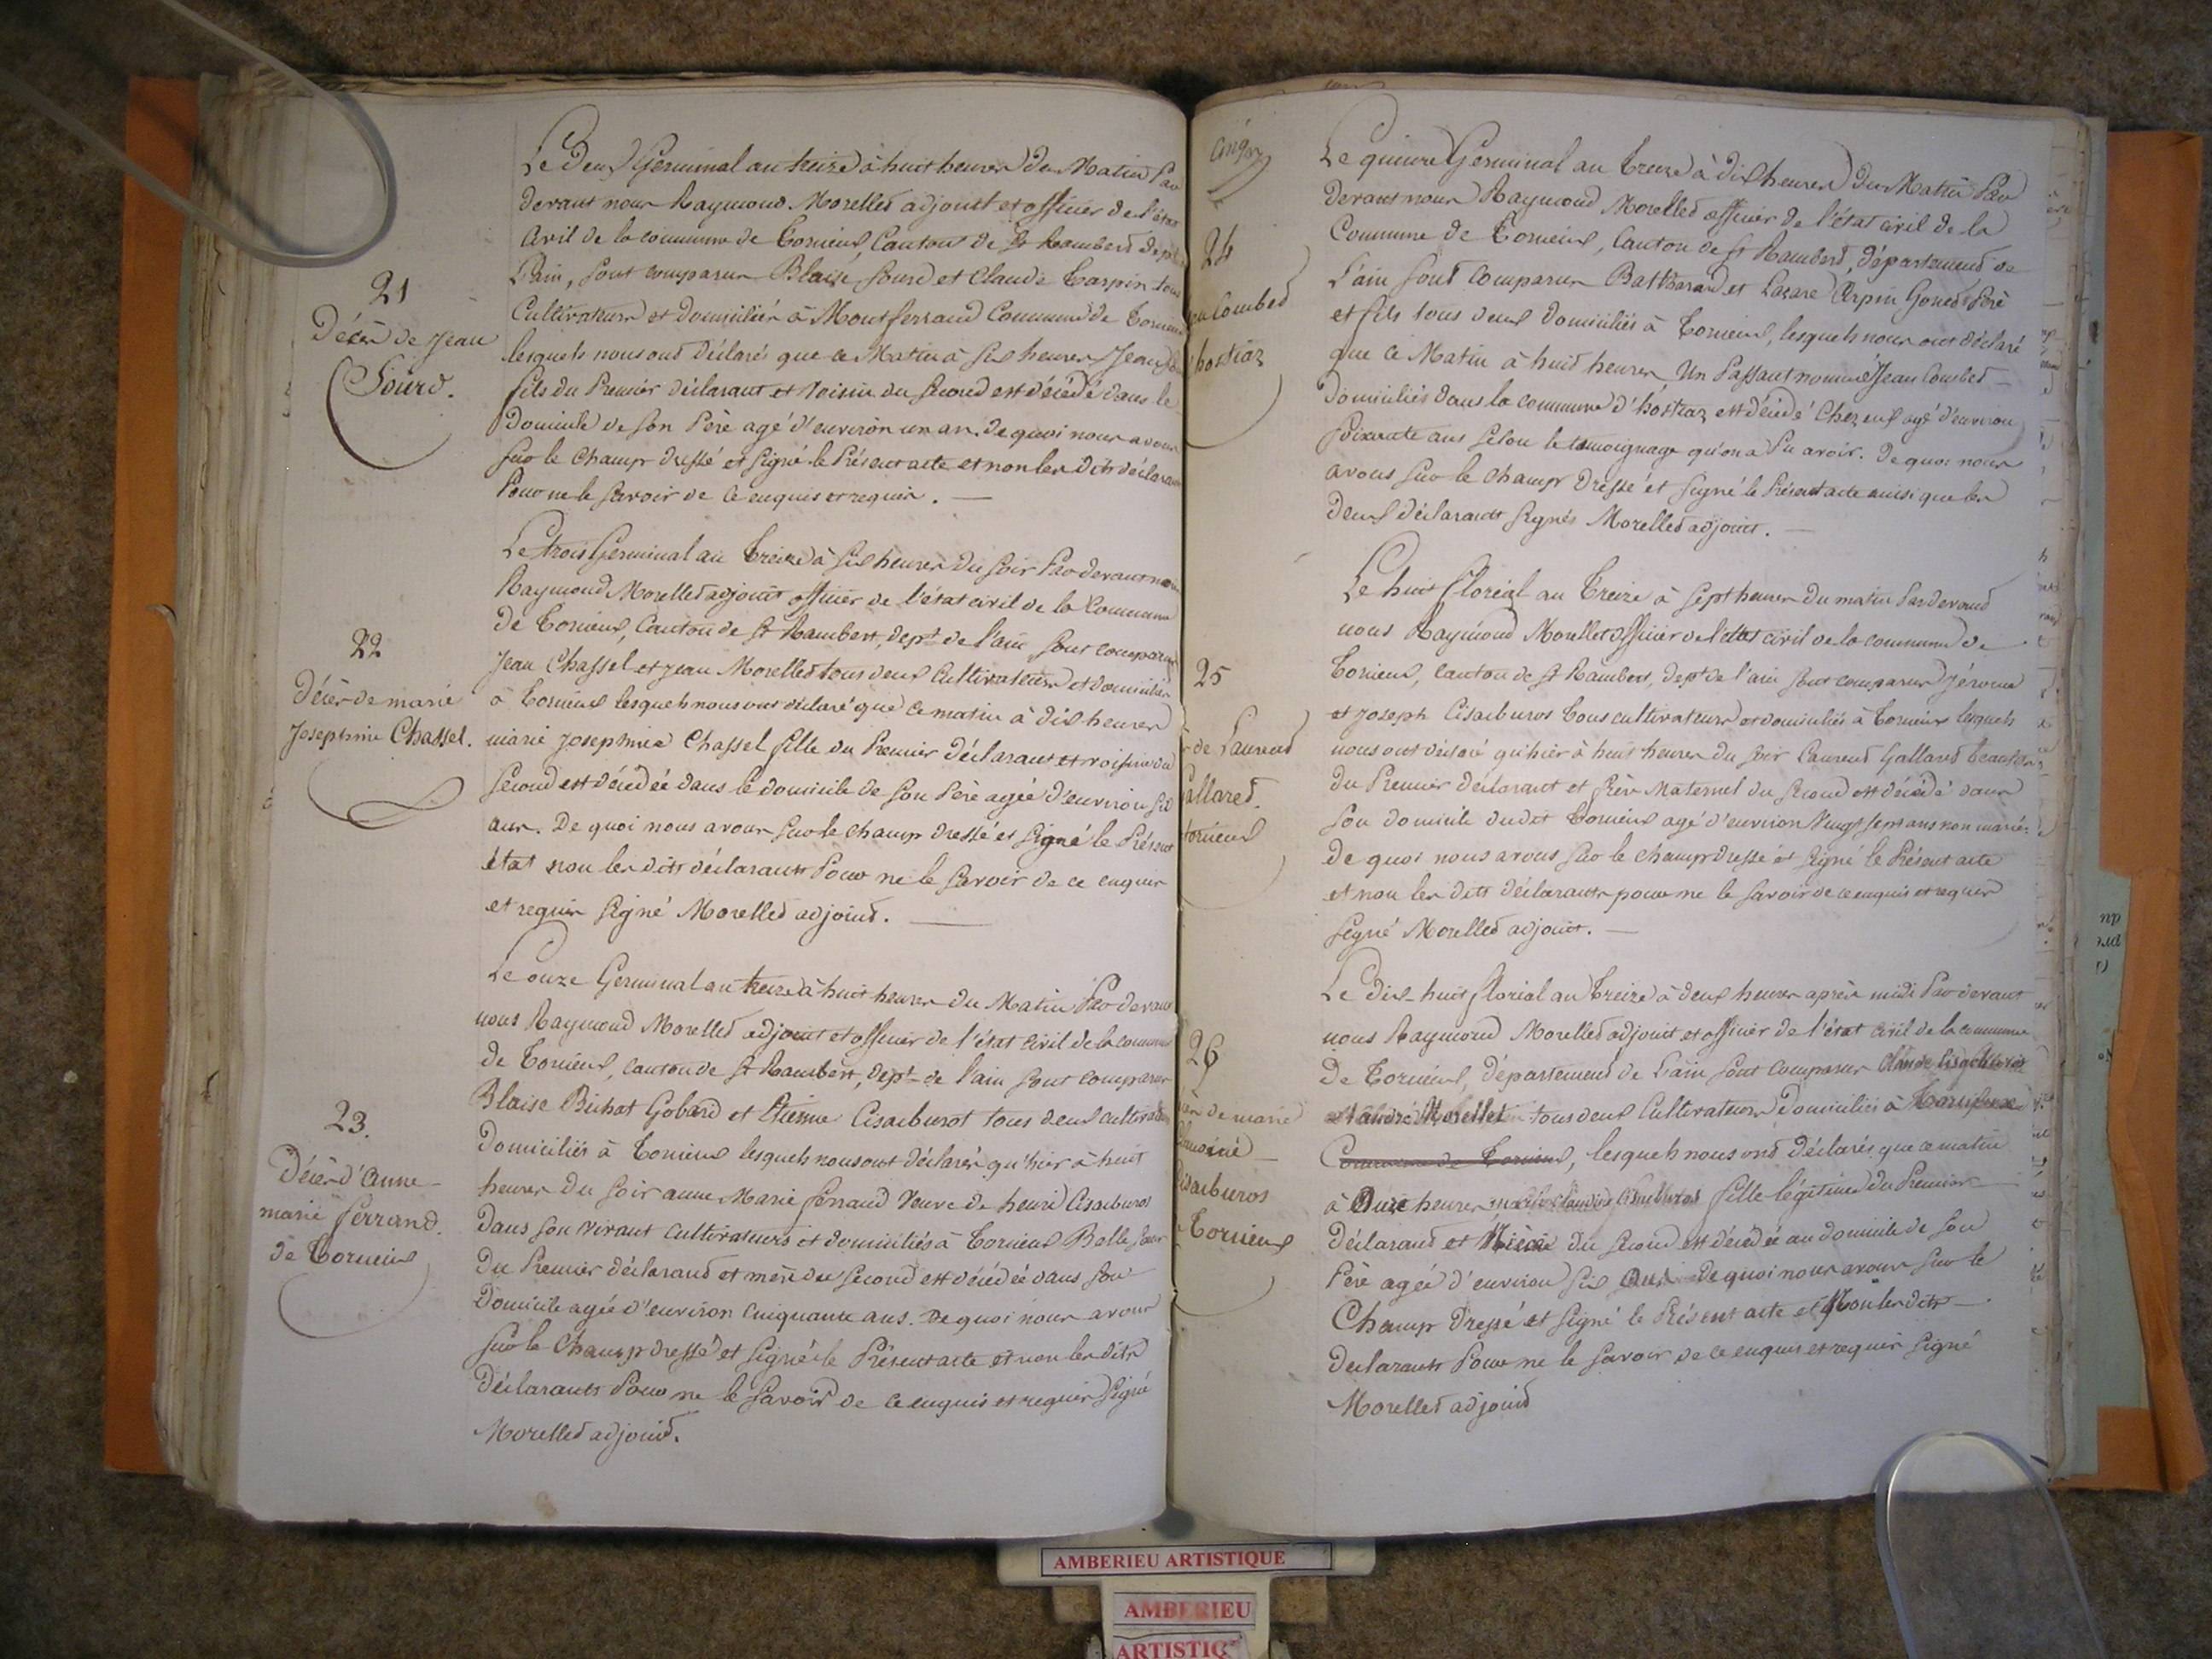 21
Décès de Jean
Sourd.
Le deux Germinal an treize à huit heures du Matin Par
devant nous Raymond Morellet adjoint et officier de l'état
Civil de la commune de Torcieux, Canton de St Rambert dept de
L'ain, sont comparus Blaise Sourd et Claude Tarpin tous
Cultivateurs et domiciliés à Montferrand Commune de Torcieux
lesquels nous ont déclarés que ce Matin à six heures Jean
fils du Premier déclarant et voisin du second est décédé dans le
Domicile de son Père agé d'environ un an. de quoi nous avons
sur le champ dressé et signé le Présent acte et non les dits déclarants
Pour ne le savoir de ce enquis et requis. —
22
Décès de marie
Josephine Chassel.
Le trois Germinal an Treize à six heures du soir Par devant nous
Raymond Morellet adjoint officier de l'état civil de la Commune
de Torcieux, Canton de St Rambert, dept de l'ain sont comparus
Jean Chassel et Jean Morellet tous deux Cultivateurs et domiciliés
à Torcieux lesquels nous ont déclaré que ce matin à dix heures
marie Josephine Chassel fille du Premier déclarant et voisine du
second est décédée dans le domicile de son Père agée d'environ six
ans. De quoi nous avons sur le champ dressé et signé le Présent
état non les dits déclarants Pour ne le savoir de ce enquis
et requis signé Morellet adjoint. —
23.
Décès d'anne
marie ferrand.
de Torcieux
Le onze Germinal an treize à huit heures du Matin Par devant
nous Raymond Morellet adjoint et officier de l'état civil de la commune
de Torcieux, canton de St Rambert, dept de l'ain sont comparus
Blaise Bichat Gobard et Etienne Cisarburot tous deux cultivateurs
Domiciliés à Torcieux lesquels nous ont déclarés qu'hier à huit
heures du soir anne Marie ferrand Veuve de henri Cisarburos
Dans son vivant cultivateurs et domiciliés à Torcieux Belle soeur
Du Premier déclarand et mère du second est décédée dans son
Domicile agée d'environ cinquante ans. De quoi nous avons
sur le Champ dressé et signé le Présent acte et non les dits
Déclarants Pour ne le savoir de ce enquis et requis signé
Morellet adjoint.
24
Combet
hostiaz
Le quinze Germinal an Treize à dix heures du Matin Par
devant nous Raymond Morellet officier de l'état civil de la
Commune de Torcieux, Canton de St Rambert, département de
L'ain sont comparus Balthazard et Lazare Tarpin Gonet Père
et fils tous deux domiciliés à Torcieux, lesquels nous ont déclaré
que ce Matin à huit heures Un Passant nommé Jean Combet —
domiciliés dans la commune d'hostiaz est décédé Chez eux agé d'environ
soixante ans selon le temoignage qu'on a Pu avoir. de quoi nous
avons sur le champ dressé et signé le Présent acte ainsi que les
deux déclarants signés Morellet adjoint. —
25
de Laurend
Gallared.
Torcieux
Le huit floréal an Treize à sept heures du matin Par devand
nous Raymond Morellet officier de l'état civil de la commune de
Torcieux, canton de St Rambert, dept de l'ain sont comparus Jérome
et Joseph Cisarburos tous cultivateurs et domiciliés à Torcieux lesquels
nous ont déclaré qu'hier à huit heures du soir Laurend Gallared beaufrere
du Premier déclarant et frère Maternel du second est décédé dans
son domicile dudit Torcieux agé d'environ Vingt sept ans non marié.
de quoi nous avons sur le champ dressé et signé le Présent acte
et non les dits déclarants pour ne le savoir de ce enquis et requis
signé Morellet adjoint. —
26
de marie
Cisarburos
Torcieux
Le dix-huit floréal an Treize à deux heures après midi Par devant
nous Raymond Morellet adjoint et officier de l'état civil de la commune
de Torcieux, département de L'ain sont comparus Claude Cisarburos
et andré Morellet tous deux Cultivateurs Domiciliés à
Commune de Torcieux, lesquels nous ond déclarés que ce matin
à Onze heures marie Claudine Cisarburos fille légitime du Premier
Déclarand et Nièce du second est décédée au domicile de son
Père agée d'environ six Ans de quoi nous avons sur le
Champ dressé et signé le Présent acte et Non les dits —
declarants Pour ne le savoir de ce enquis et requis signé
Morellet adjoint
AMBERIEU ARTISTIQUE
AMBERIEU
ARTISTIQ